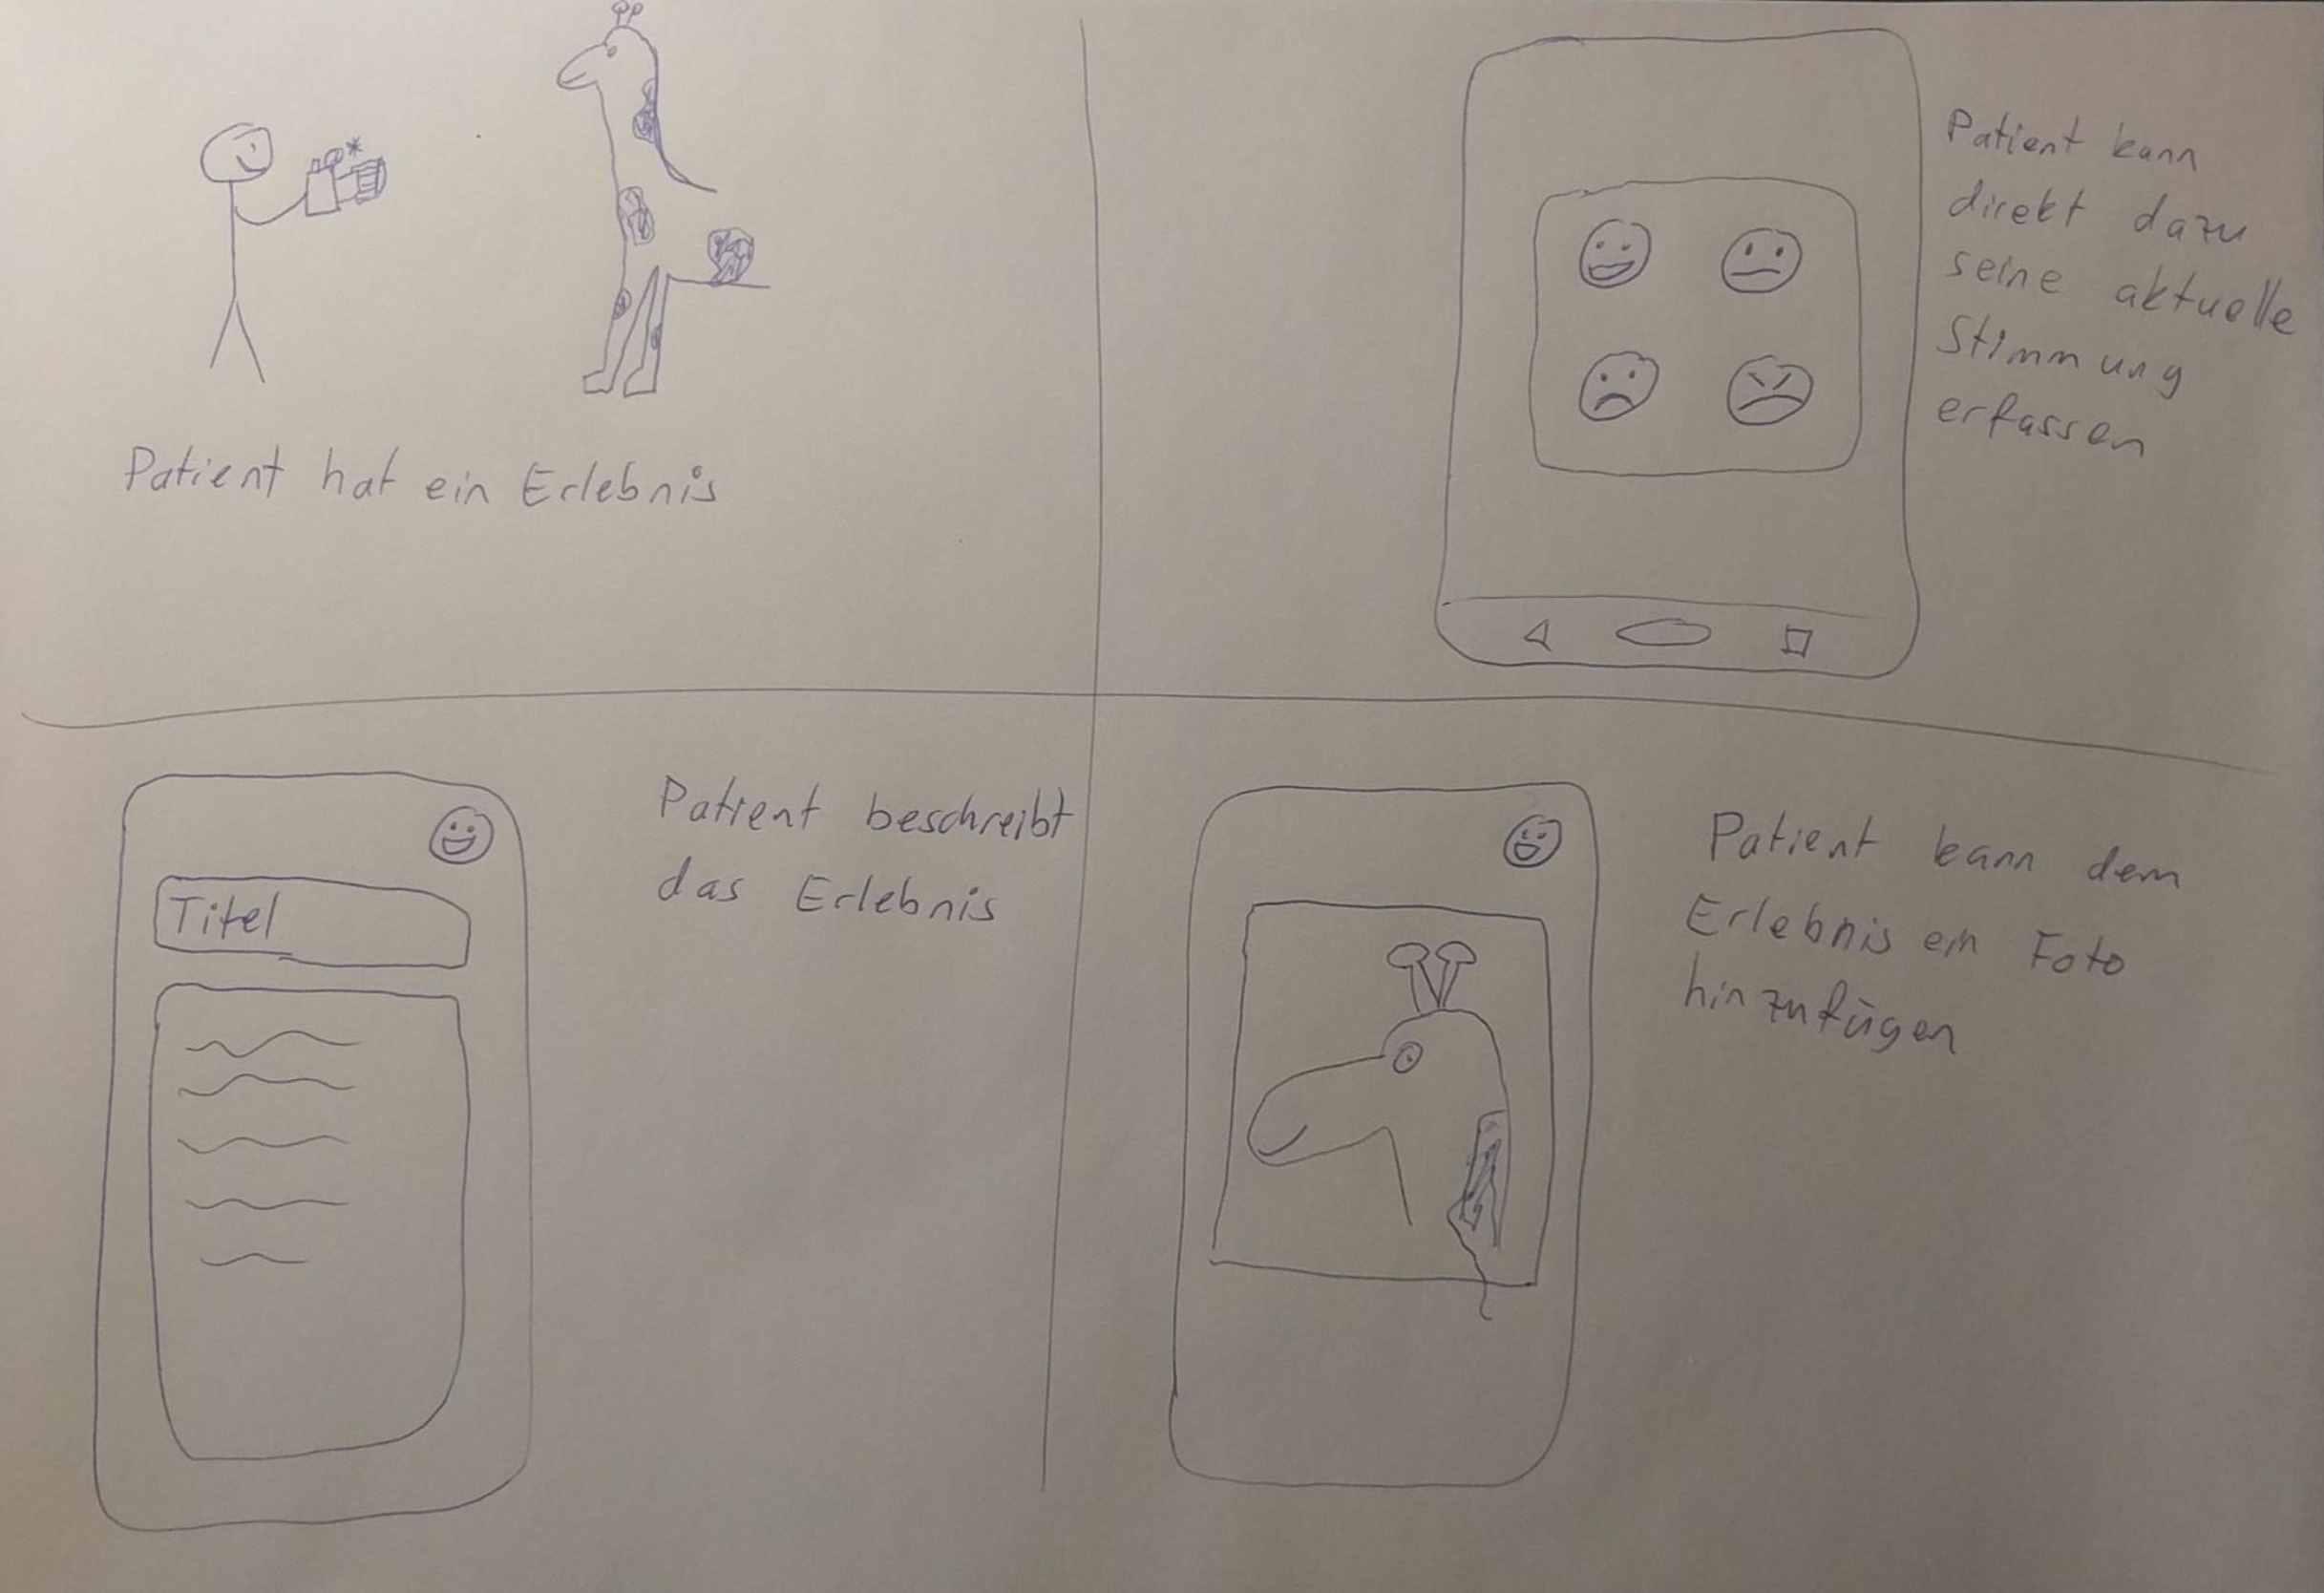 Patient hat ein Erlebnis
Patient kann
direkt dazu
seine aktuelle
Stimmung
erfassen
Titel
Patient beschreibt
das Erlebnis
Patient kann dem
Erlebnis ein Foto
hinzufügen